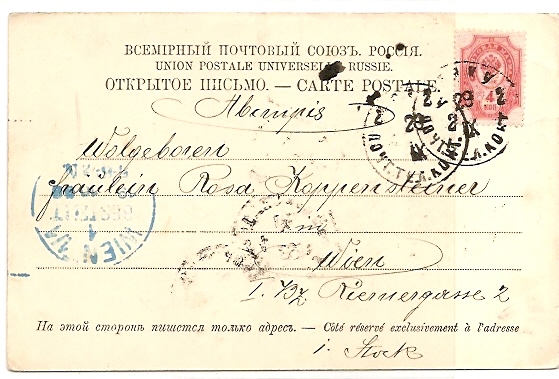 ВСЕМІРНЫЙ ПОЧТОВЫЙ СОЮЗЪ. РОССІЯ.
UNION POSTALE UNIVERSELLE. RUSSIE.
ОТКРЫТОЕ ПИСЬМО. — CARTE POSTALE.
Wolgeboren
Fräulein Rosa Koppensteiner
in
Wien
I. Riemergasse 2
На этой сторонѣ пишется только адресъ. — Côté réservé exclusivement à l'adresse
i. Stock
WIEN
BESTELLT
1
ПОЧТ. ТЕЛ. КОНТ.
29
2
IX